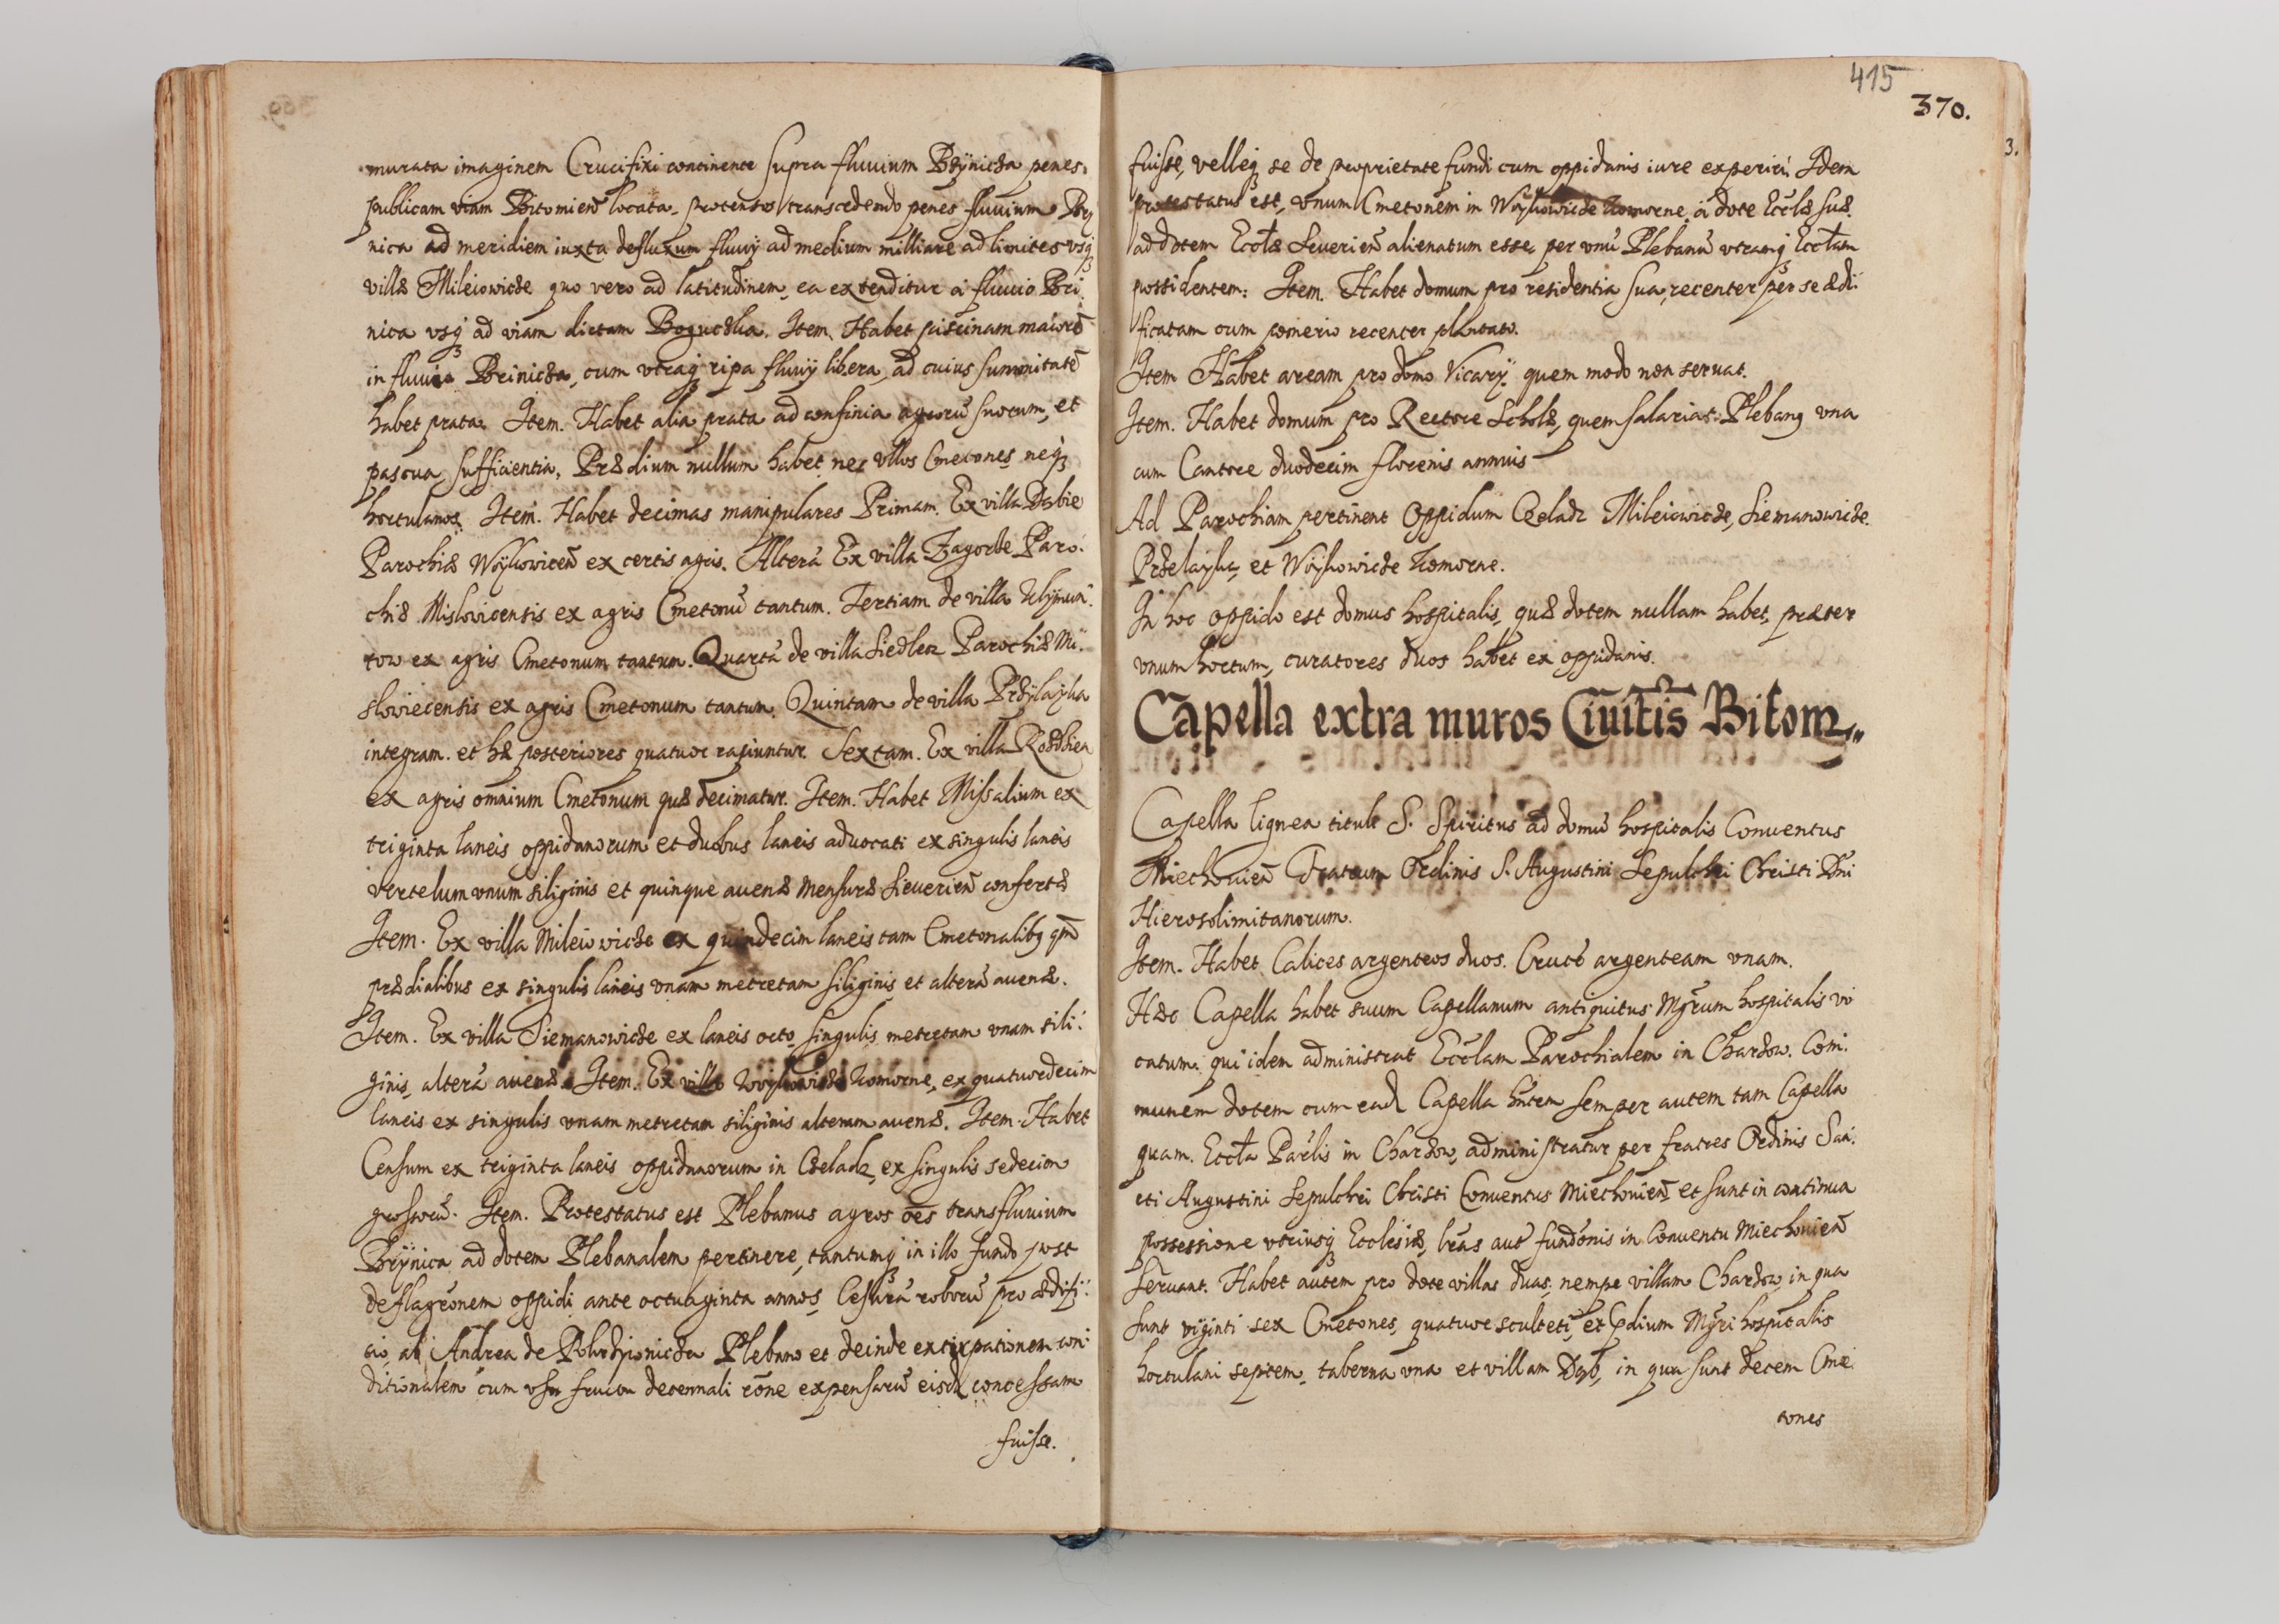 murata imaginem Crucifixi continente supra fluuium Brÿnicza penes
publicam viam Bitomien̄ locata, protensos transcedendo penes fluuium Bry
nica ad meridiem iuxta defluxum fluuÿ ad medium milliare ad limites vsq3
villæ Mileiowicze quo vero ad latitudinem, ea extenditur a fluuio Bri
nica vsq3 ad viam dictam Boguczka. Item. Habet piscinam maiorē
in fluuio Brinicza, cum vtraq3 ripa fluuÿ libera, ad cuius summitatē
habet prata. Item. Habet alia prata ad confinia agrorū suorum, et
pascua sufficientia. Prædium nullum habet nec vllos Cmetones neq3
hortulanos. Item. Habet decimas manipulares Primam. Ex villa Dąbie
Parochiæ Woÿkowiceñ ex certis agris. Alterā Ex villa Zagorze Paro-
chiæ Mislovicensis ex agris Cmetonū tantum. Tertiam de villa Klymun-
tow ex agris Cmetonum tantum. Quartā de villa Siedlecz Parochiæ Mi-
slowiecensis ex agris Cmetonum tantum. Quintam de villa Przÿlaÿka
integram. et hæ posteriores quatuor rapiuntur. Sextam. Ex villa Rozdzien
ex agris omnium Cmetonum quæ decimatur. Item. Habet Missalium ex
triginta laneis oppidanorum et duobus laneis aduocati ex singulis laneis
vertelum vnum siliginis et quinque auenæ mensuræ Sieuerien̄ confertæ
Item. Ex villa Mileiowicze ex quindecim laneis tam Cmetonalib9 qm̄
prædialibus ex singulis laneis vnam metretam siliginis et alterā auenæ.
Item. Ex villa Siemanowicze ex laneis octo singulis metretam vnam sili-
ginis, alterā auenæ. Item. Ex villa Woÿkowicze Komorne, ex quatuordecim
laneis ex singulis vnam metretam siliginis alteram auenæ. Item. Habet
Censum ex triginta laneis oppidanorum in Czeladz, ex singulis sedecim
grossorū. Item. Protestatus est Plebanus agros oēs transfluuium
Brÿnica ad dotem Plebanalem pertinere, tantumq3 in illo fundo post
deflagrōnem oppidi ante octuaginta annos, Cessurā roborū pro ædifi-
tio, ab Andrea de Plebano et deinde extirpationem con-
ditionalem cum vsu fructu decennali rōne expensarū eisd concessam
fuisse.
415
370.
3.
fuisse, velleq3 se de proprietate fundi cum oppidanis iure experiri. Idem
protestatus est, vnum Cmetonem in Woÿkowicze Komorne, a dote Eccl̄æ suæ
ad dotem Eccl̄æ Seuerien̄ alienatum esse per vnū Plebanū vtramq3 Eccl̄am
possidentem. Item. Habet domum pro residentia sua, recenter per se ædi-
ficatam cum pomerio recenter plantato.
Item Habet aream pro domo Vicarÿ quem modo non seruat.
Item. Habet domum pro Rectore Scholæ, quem salariat Pleban9 vna
cum Cantore duodecim florenis annuis
Ad Parochiam pertinent Oppidum Czeladz Mileiowicze, Siemanowicze
Przelaÿka, et Woÿkowicze Komorne.
In hoc oppido est domus hospitalis, quæ dotem nullam habet, præter
vnum hortum, curatores duos habet ex oppidanis.
Capella extra muros Ciuitīs Bitom,,
Capella lignea tituli S. Spiritus ad domū hospitalis Conuentus
Miechouien̄ Fratrum Ordinis S. Augustini Sepulchri Christi Dn̄i
Hierosolimitanorum.
Item. Habet Calices argenteos duos. Crucē argenteam vnam.
Hæc Capella habet suum Capellanum antiquitus Mgr̄um hospitalis vo
catum, qui idem administrat Eccl̄am Parochialem in Charzow. Com-
munem dotem cum ead Capella hn̄tem semper autem tam Capella
quam. Eccl̄a Par̄lis in Charzow, administratur per fratres Ordinis San-
cti Augustini Sepulchri Christi Conuentus Miechouien̄ et sunt in continua
possessione vtriusq3 Ecclesiæ, lr̄as aut̄ fundōnis in Conuentu Miechouien̄
seruant. Habet autem pro dote villas duas, nempe villam Charzow, in qua
sunt viginti sex Cmetones, quatuor sculteti, et Mgr̄i hospitalis
hortulani septem, taberna vna et villam Dąb, in qua sunt decem Cme-
tones